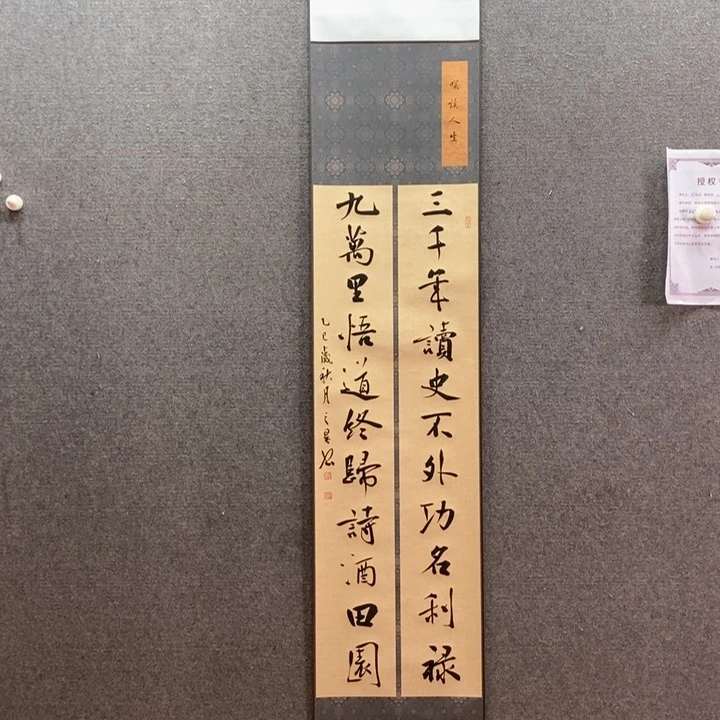 三千年讀史不外功名利禄
九萬里悟道終歸詩酒田園
乙巳歲秋月
人生
授权